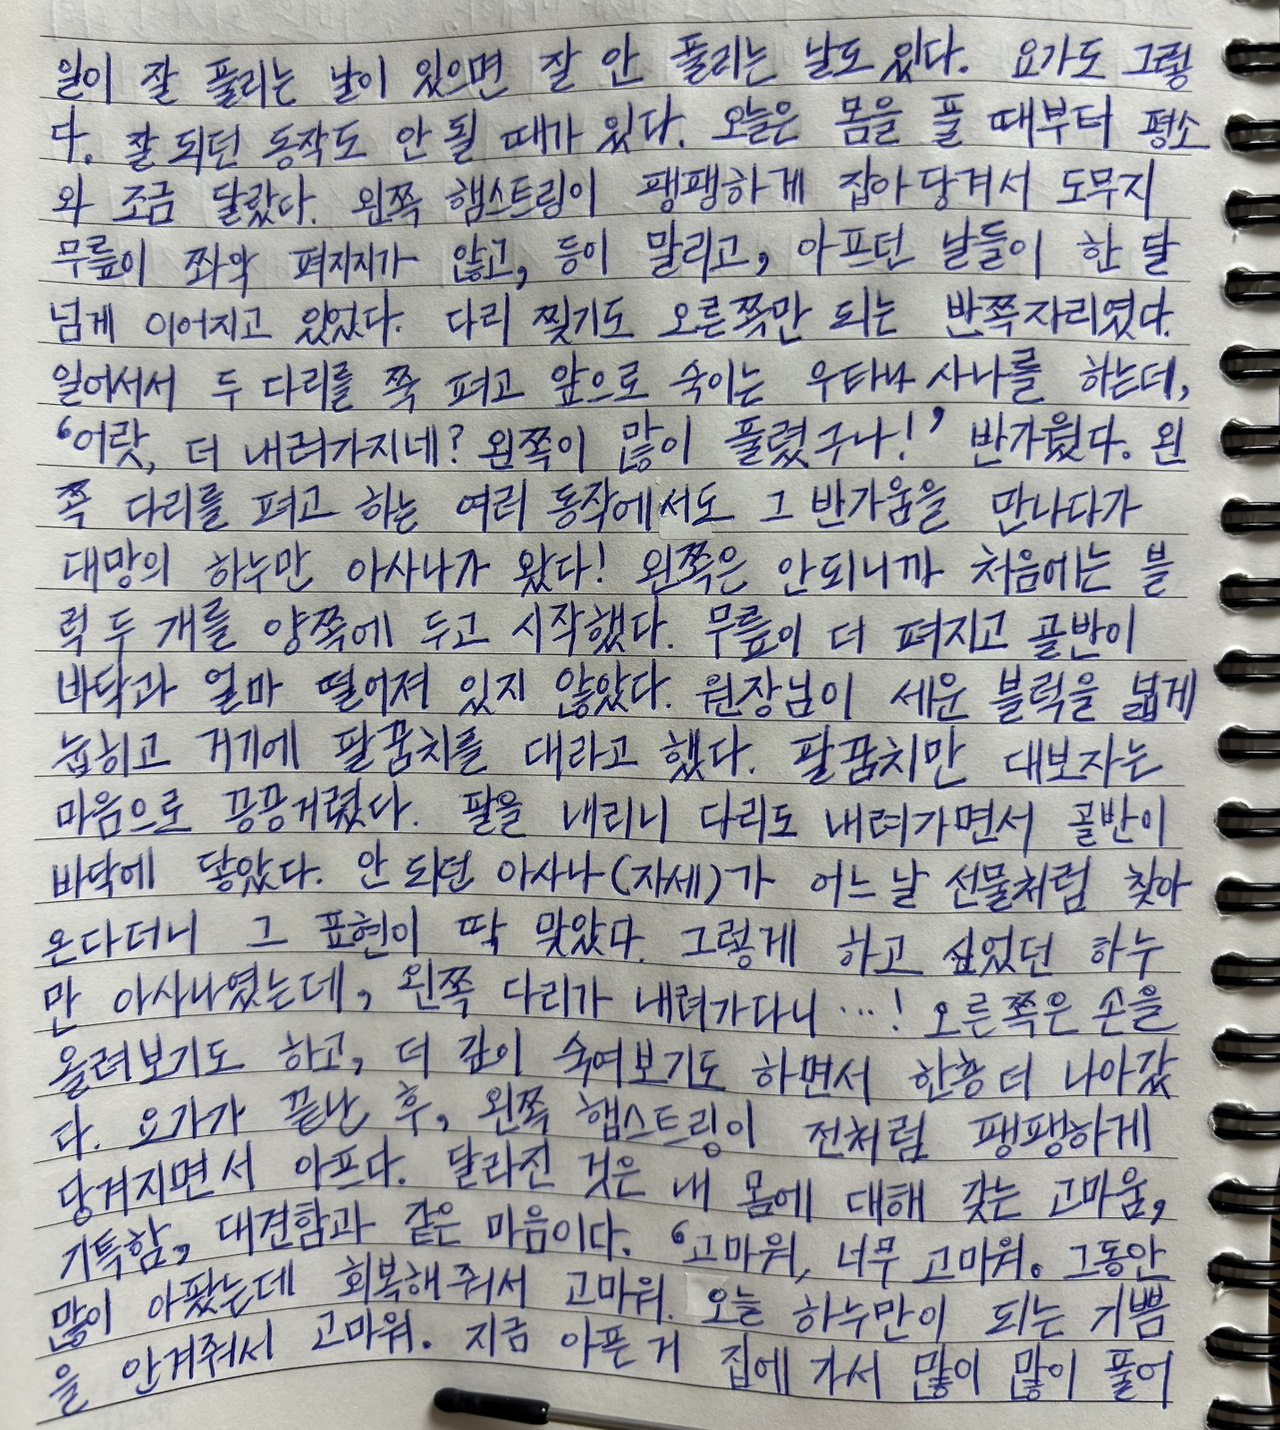 일이 잘 풀리는 날이 있으면 잘 안 풀리는 날도 있다. 요가도 그렇
다. 잘 되던 동작도 안 될 때가 있다. 오늘은 몸을 풀 때부터 평소
와 조금 달랐다. 왼쪽 햄스트링이 팽팽하게 잡아당겨서 도무지
무릎이 쫘악 펴지지가 않고, 등이 말리고, 아프던 날들이 한 달
넘게 이어지고 있었다. 다리 찢기도 오른쪽만 되는 반쪽자리였다.
일어서서 두 다리를 쭉 펴고 앞으로 숙이는 우타나 사나를 하는데,
‘어랏, 더 내려가지네? 왼쪽이 많이 풀렸구나!’ 반가웠다. 왼
쪽 다리를 펴고 하는 여러 동작에서도 그 반가움을 만나다가
대망의 하누만 아사나가 왔다! 왼쪽은 안되니까 처음에는 블
럭 두 개를 양쪽에 두고 시작했다. 무릎이 더 펴지고 골반이
바닥과 얼마 떨어져 있지 않았다. 원장님이 세운 블럭을 넓게
눕히고 거기에 팔꿈치를 대라고 했다. 팔꿈치만 대보자는
마음으로 끙끙거렸다. 팔을 내리니 다리도 내려가면서 골반이
바닥에 닿았다. 안 되던 아사나(자세)가 어느 날 선물처럼 찾아
온다더니 그 표현이 딱 맞았다. 그렇게 하고 싶었던 하누
만 아사나였는데, 왼쪽 다리가 내려가다니 …! 오른쪽은 손을
올려보기도 하고, 더 깊이 숙여보기도 하면서 한층 더 나아갔
다. 요가가 끝난 후, 왼쪽 햄스트링이 전처럼 팽팽하게
당겨지면서 아프다. 달라진 것은 내 몸에 대해 갖는 고마움,
기특함, 대견함과 같은 마음이다. ‘고마워, 너무 고마워. 그동안
많이 아팠는데 회복해줘서 고마워. 오늘 하누만이 되는 기쁨
을 안겨줘서 고마워. 지금 아픈 거 집에 가서 많이 많이 풀어